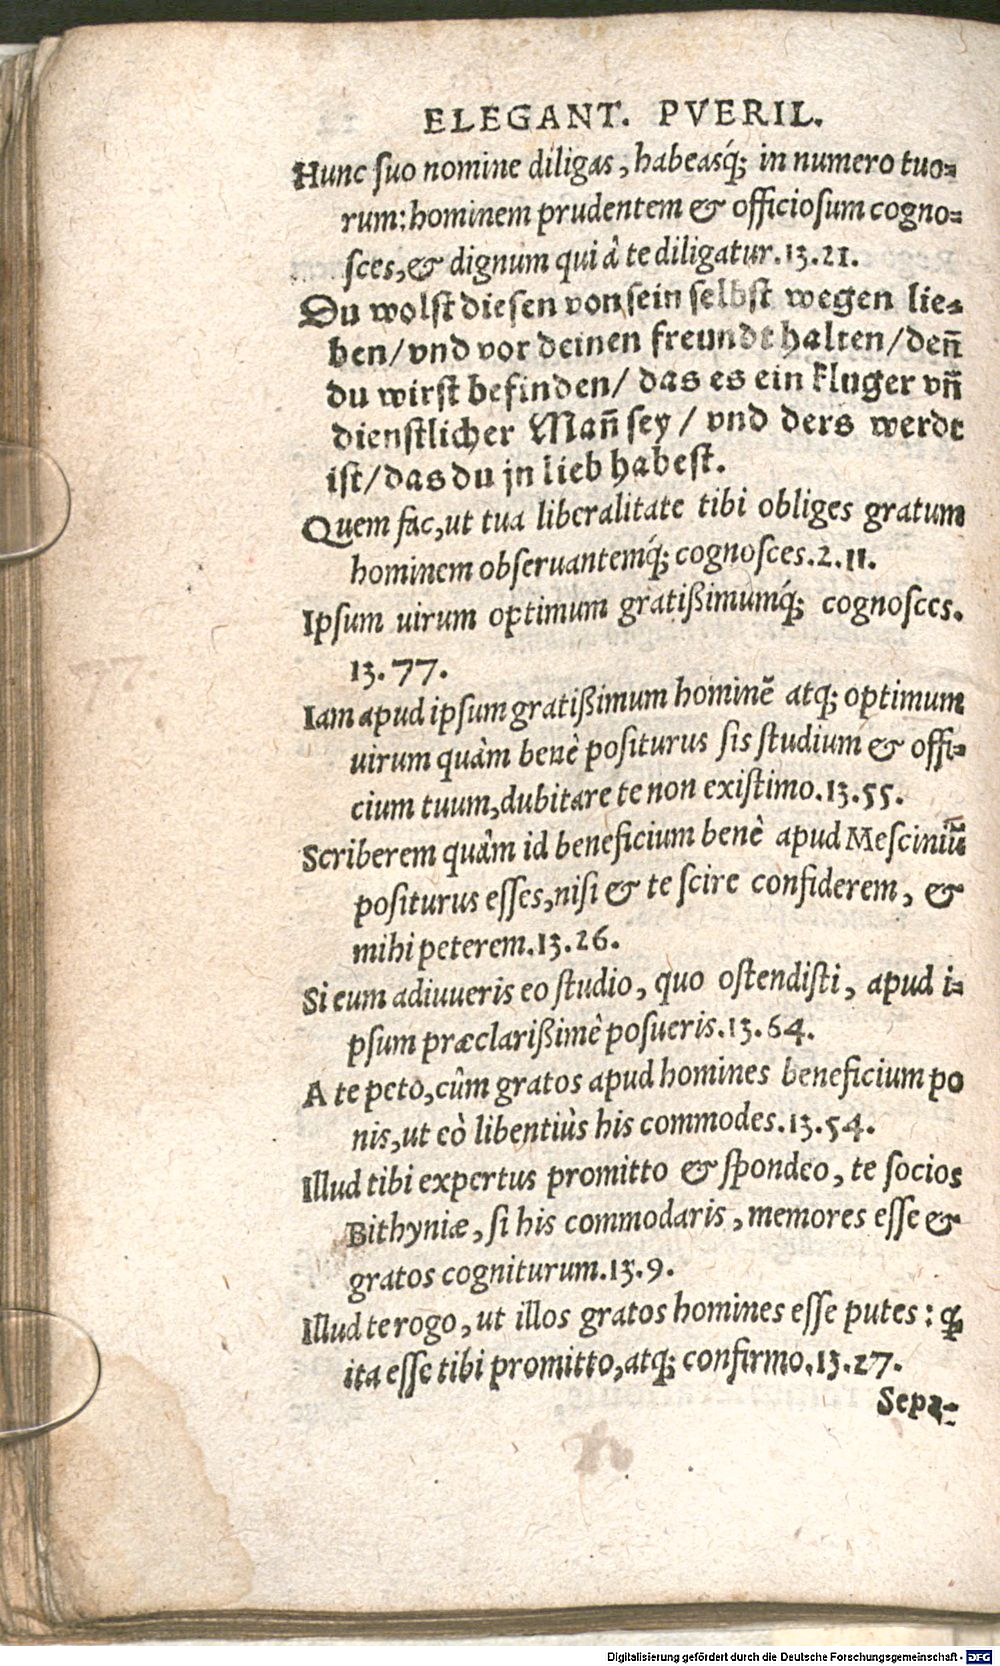 ELEGANT. PVERIL.
Hunc suo nomine diligas, habeasq́; in numero tuo-
rum: hominem prudentem & officiosum cogno-
sces, & dignum qui â te diligatur. 13. 21.
Du wolst diesen von sein selbst wegen lie-
ben/vnd vor deinen freundt halten/deñ
du wirst befinden/ das es ein kluger vñ
dienstlicher Mañ sey / vnd ders werdt
ist/das du jn lieb habest.
Quem fac, ut tua liberalitate tibi obliges gratum
hominem observantemq́; cognosces. 2. 11.
Ipsum uirum optimum gratißimumq́; cognosces.
13. 77.
Iam apud ipsum gratißimum hominē atq; optimum
uirum quàm benè positurus sis studium & offi-
cium tuum, dubitare te non existimo. 13. 55.
Scriberem quâm id beneficium benè apud Mesciniū
positurus esses, nisi & te scire confiderem, &
mihi peterem. 13. 26.
Si eum adiuueris eo studio, quo ostendisti, apud i-
psum præclarißimê posueris. 13. 64.
A te peto, cûm gratos apud homines beneficium po
nis, ut eò libentiùs his commodes. 13. 54.
Illud tibi expertus promitto & spondeo, te socios
Bithyniæ, si his commodaris, memores esse &
gratos cogniturum. 13. 9.
Illud te rogo, ut illos gratos homines esse putes: ꝙ
ita esse tibi promitto, atq; confirmo. 13. 27.
Sepa-
Digitalisierung gefördert durch die Deutsche Forschungsgemeinschaft - DFG